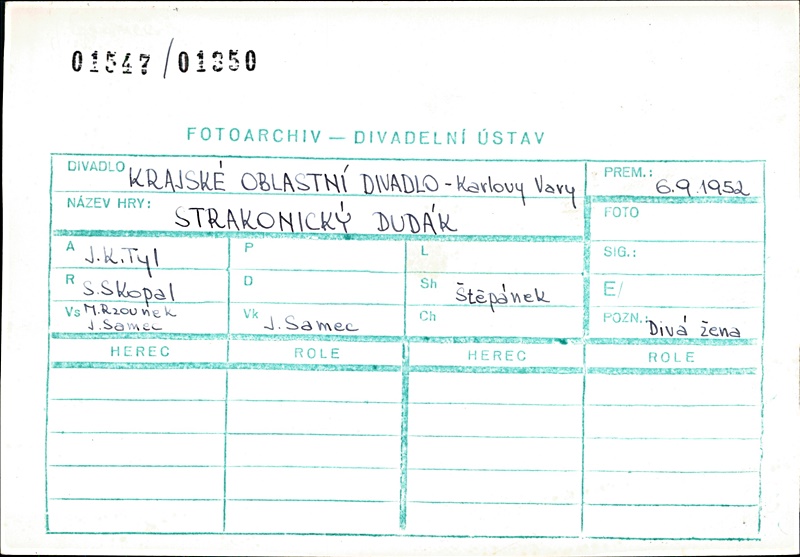 01547/01350
FOTOARCHIV — DIVADELNÍ ÚSTAV
DIVADLO KRAJSKÉ OBLASTNÍ DIVADLO - Karlovy Vary
PREM.: 6.9.1952
NÁZEV HRY: STRAKONICKÝ DUDÁK
FOTO
A J.K.Tyl P L SIG.:
R S.Skopal D Sh Štěpánek E/
Vs M.Rzounek Vk J.Samec Ch POZN.: Divá žena
J.Samec
HEREC ROLE HEREC ROLE